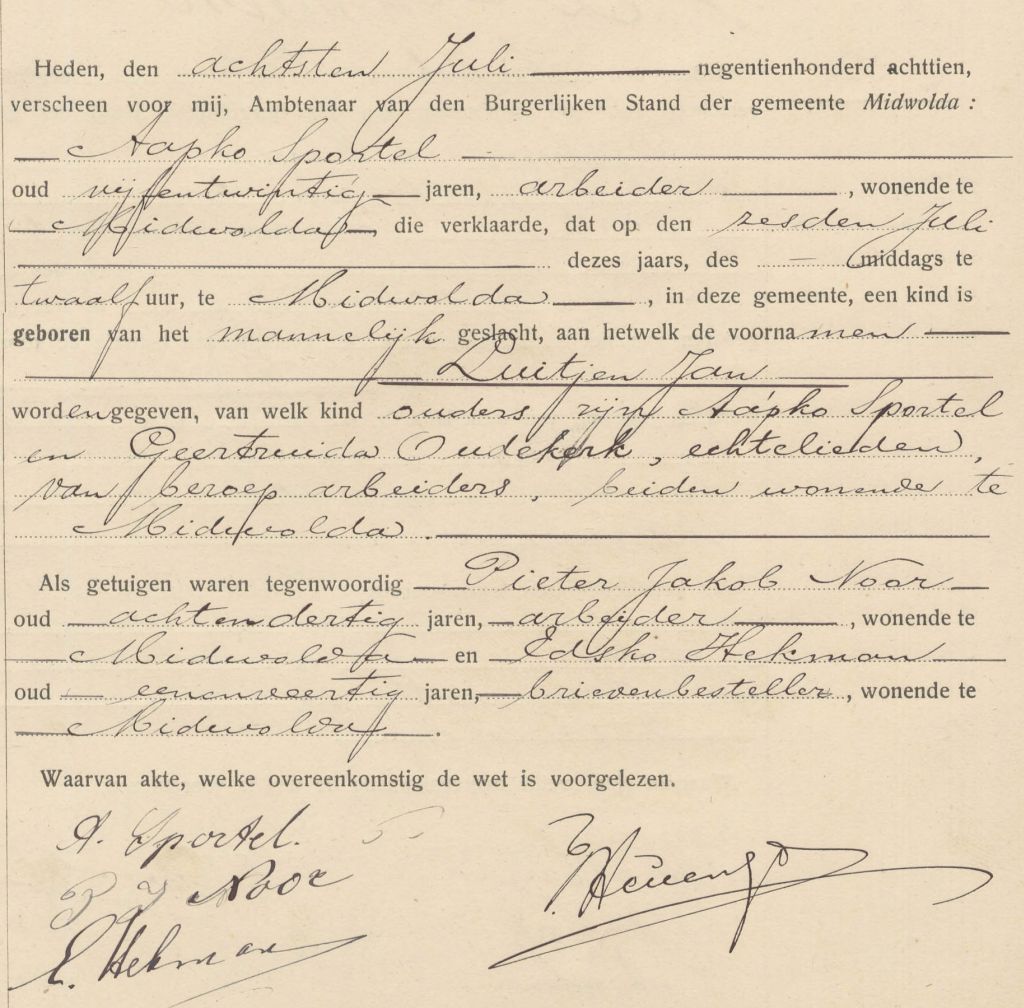 Heden, den achtsten Juli negentienhonderd achttien,
verscheen voor mij, Ambtenaar van den Burgerlijken Stand der gemeente Midwolda:
Aapko Sportel
oud vijfentwintig jaren, arbeider, wonende te
Midwolda, die verklaarde, dat op den zesden Juli
dezes jaars, des — middags te
twaalf uur, te Midwolda, in deze gemeente, een kind is
geboren van het mannelijk geslacht, aan hetwelk de voornamen
Luitjen Jan
worden gegeven, van welk kind ouders zijn Aapko Sportel
en Geertruida Oudekerk, echtelieden,
van beroep arbeiders, beiden wonende te
Midwolda.
Als getuigen waren tegenwoordig Pieter Jakob Noor
oud achtendertig jaren, arbeider, wonende te
Midwolda en Edsko Hekman
oud eenenveertig jaren, brievenbesteller, wonende te
Midwolda.
Waarvan akte, welke overeenkomstig de wet is voorgelezen.
A. Sportel.
P J Noor
E. Hekman